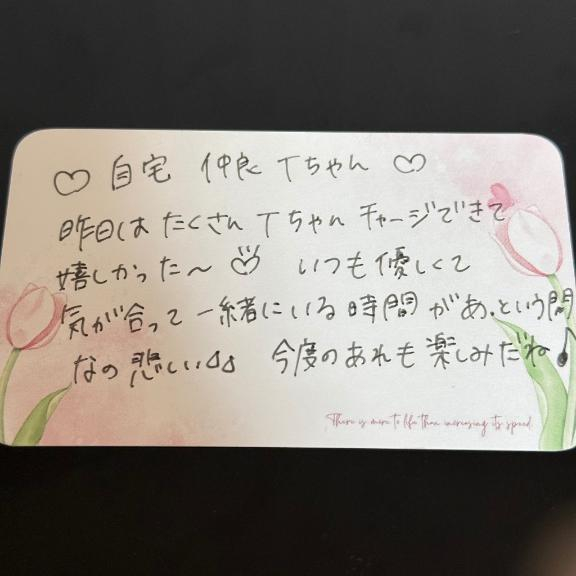 ♡ 自宅 仲良 Tちゃん ♡
昨日はたくさん Tちゃん チャージできて
嬉しかった〜♡ いつも優しくて
気が合って一緒にいる時間があ.という間
なの悲しい 今度のあれも楽しみだね♪
There is more to life than increasing its speed.